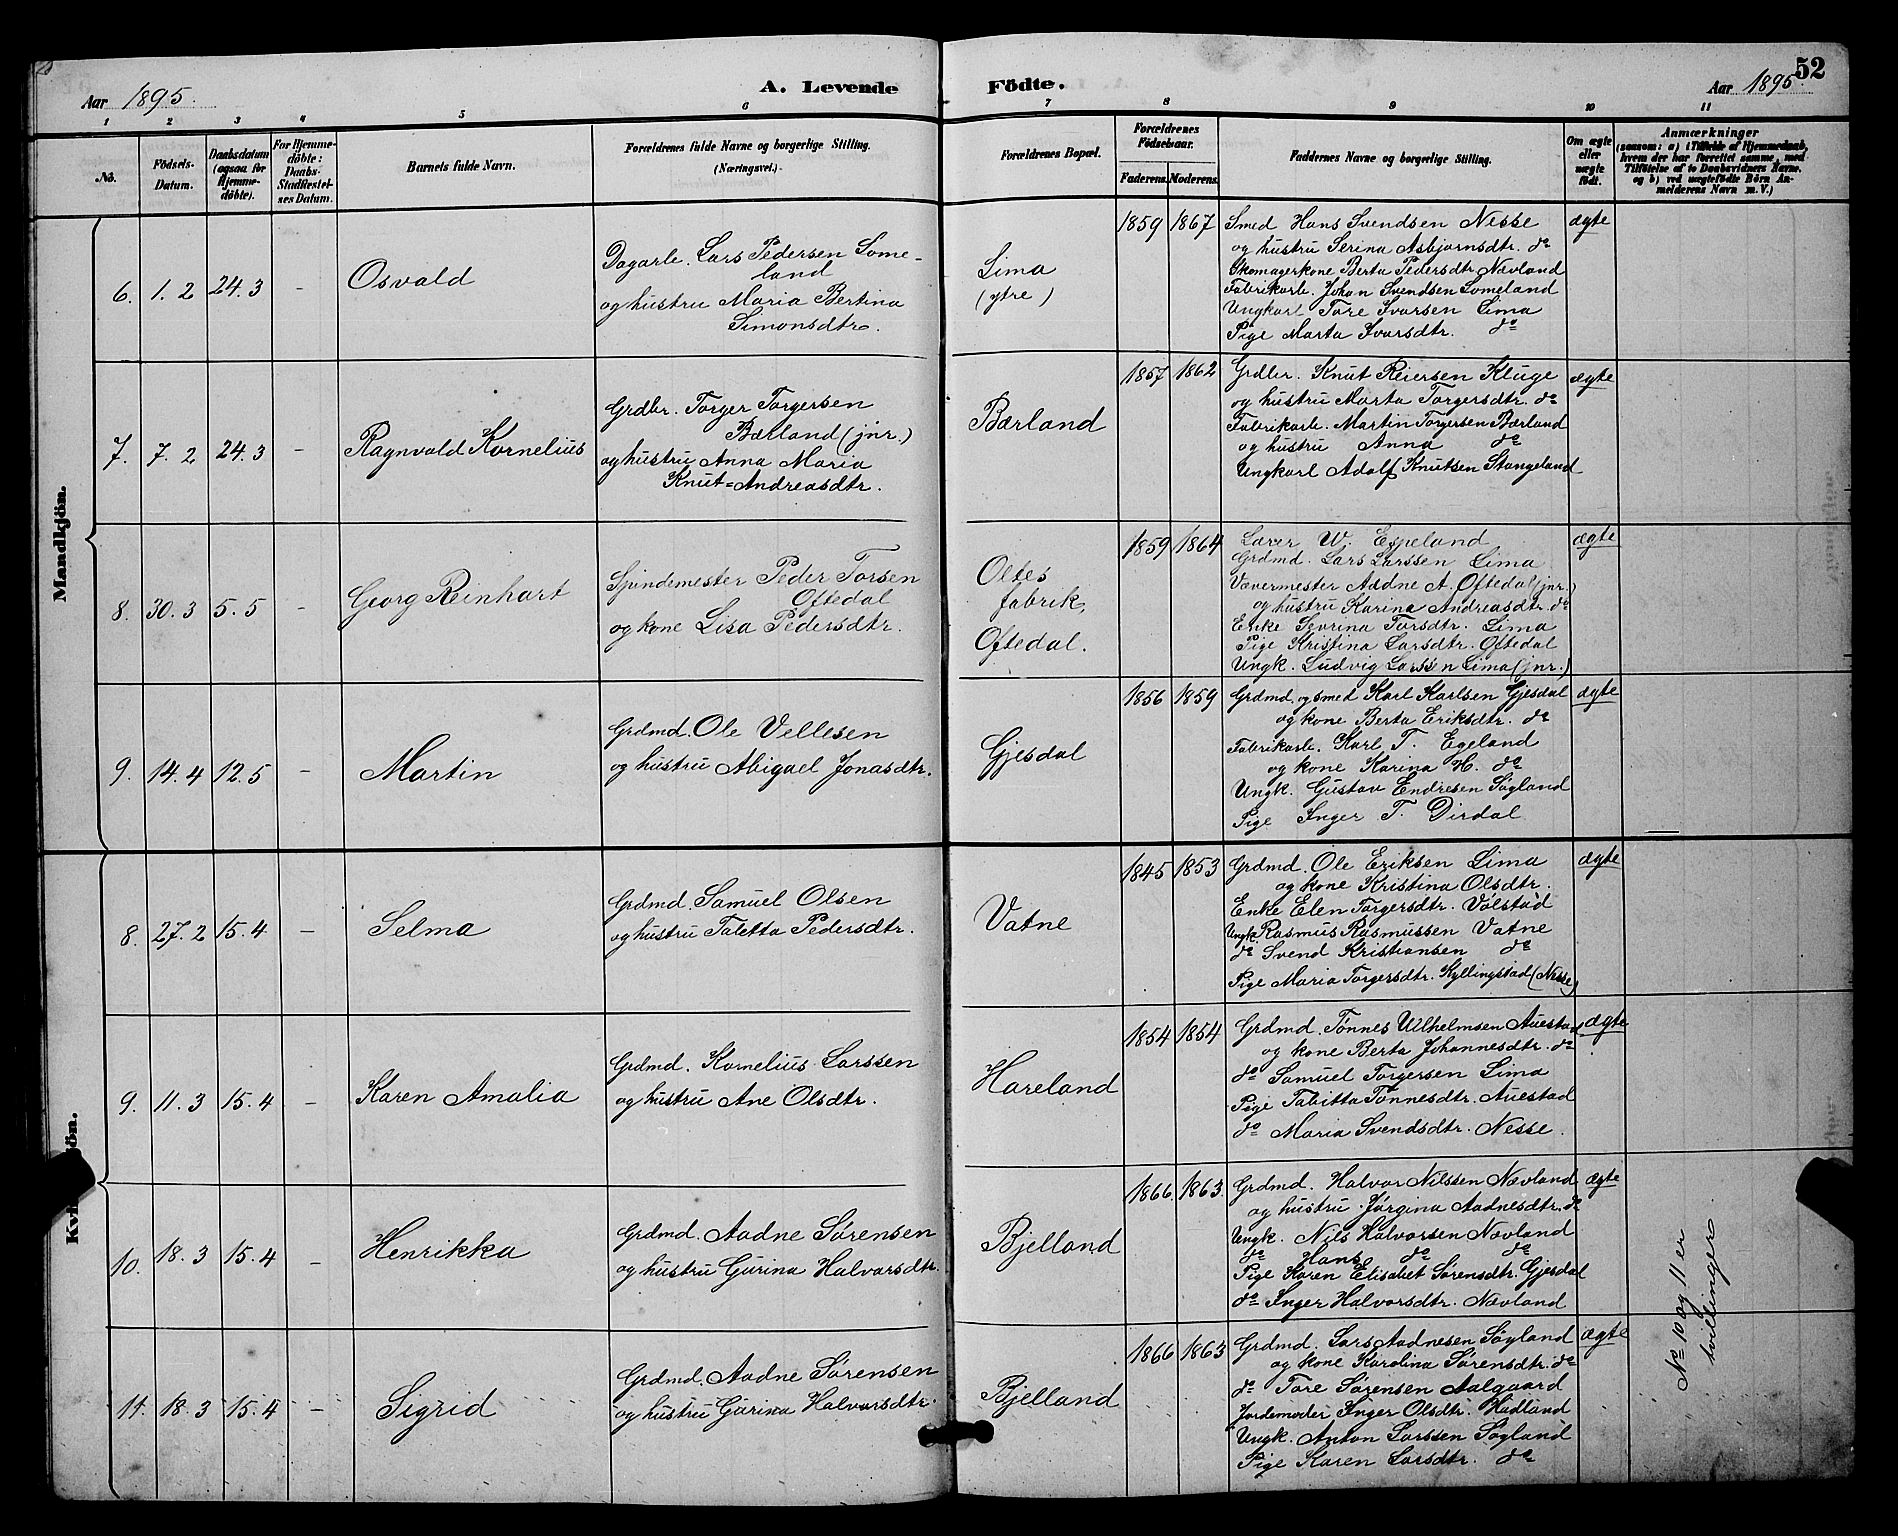 Aar 1895.
A. Levende Födte.
Aar 1895.
52
1 2 3 4 5 6 7 8 9 10 11
No.
Födsels-Datum.
Daabsdatum (ogsaa for Hjemmedöbte).
For Hjemmedöbte: Daabs-Stadfæstelses Datum.
Barnets fulde Navn.
Forældrenes fulde Navne og borgerlige Stilling.
(Næringsvei.)
Forældrenes Bopæl.
Forældrenes Födselsaar.
Faderens. Moderens.
Faddernes Navne og borgerlige Stilling.
Om ægte eller uægte födt.
Anmærkninger
(saasom: a) i Tilfælde af Hjemmedaab,
hvem der har forrettet samme, med
Tilföielse af to Daabsvidners Navne,
og b) ved uægtefödte Börn An-
melderens Navn m. V.)
Mandkjön.
6. 1. 2 24. 3 – Osvald
Dagarb. Lars Pedersen Some-
land
og hustru Maria Bertina
Simonsdtr.
Lima
(ytre)
1859 1867
Smed Hans Svendsen Nesse
og hustru Serina Asbjørnsdtr. do
Skomagerkone Berta Pedersdtr. Nævland
Fabrikarb. Johan Svendsen Someland
Ungkarl Tore Ivarsen Lima
Pige Marta Ivarsdtr. do
ægte
7. 7. 2 24. 3 – Ragnvald Kornelius
Grdbr. Torger Torgersen
Bærland (jnr.)
og hustru Anna Maria
Knut=Andreasdtr.
Bærland
1857 1862
Grdbr. Knut Reiersen Kluge
og hustru Marta Torgersdtr. do
Fabrikarb. Martin Torgersen Bærland
og hustru Anna do
Ungkarl Adolf Knutsen Stangeland
ægte
8. 30. 3 5. 5 – Georg Reinhart
Spindemester Peder Torsen
Oftedal
og kone Lisa Pedersdtr.
Oltes
fabrik,
Oftedal.
1859 1864
Lærer W. Espeland
Grdmd. Lars Larssen Lima
Vævermester Aadne A. Oftedal (jnr.)
og hustru Karina Andreasdtr. do
Enke Sevrina Torsdtr. Lima
Pige Kristina Larsdtr. Oftedal
Ungk. Ludvig Larssen Lima (jnr.)
ægte
9. 14. 4 12. 5 – Martin
Grdmd. Ole Vellesen
og hustru Abigael Jonasdtr.
Gjesdal
1856 1859
Grdmd. og smed Karl Karlsen Gjesdal
og kone Berta Eriksdtr. do
Fabrikarb. Karl T. Egeland
og kone Karina H. do
Ungk. Gustav Endresen Søyland
Pige Inger T. Dirdal
ægte
8. 27. 2 15. 4 – Selma
Grdmd. Samuel Olsen
og hustru Taletta Pedersdtr.
Vatne
1845 1853
Grdmd. Ole Eriksen Lima
og kone Kristina Olsdtr.
Enke Elen Torgersdtr. Vølstad
Ungk. Rasmus Rasmussen Vatne
do Svend Kristiansen do
Pige Maria Torgersdtr. Kyllingstad (Nesse)
ægte
9. 11. 3 15. 4 – Karen Amalia
Grdmd. Kornelius Larssen
og hustru Ane Olsdtr.
Hareland
1854 1854
Grdmd. Tønnes Wilhelmsen Auestad
og kone Berta Johannesdtr. do
do Samuel Torgersen Lima
Pige Tabitta Tønnesdtr. Auestad
do Maria Svendsdtr. Nesse.
ægte
10. 18. 3 15. 4 – Henrikka
Grdmd. Aadne Sørensen
og hustru Gurina Halvorsdtr.
Bjelland
1866. 1863.
Grdmd. Halvor Nilssen Nævland
og hustru Jørgina Aadnesdtr. do
Ungk. Nils Halvorsen Nævland
do Hans do do
Pige Karen Elisabet Sørensdtr. Gjesdal
do Inger Halvorsdtr. Nævland
ægte
11. 18. 3 15. 4 – Sigrid
Grdmd. Aadne Sørensen
og hustru Gurina Halvorsdtr.
Bjelland
1866 1863
Grdmd. Lars Aadnesen Søyland
og kone Karolina Sørensdtr. do
do Tore Sørensen Aalgaard
Jordemoder Inger Olsdtr. Hadland
Ungk. Anton Larssen Søyland
Pige Karen Larsdtr. do
ægte
No 10 og 11 er
tvillinger